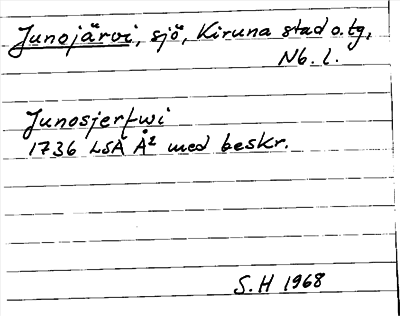 Junojärvi, sjö, Kiruna stad o. tg,
Nb. l.
Junosjerfwi
1736 LSA Å² med beskr.
S.H 1968